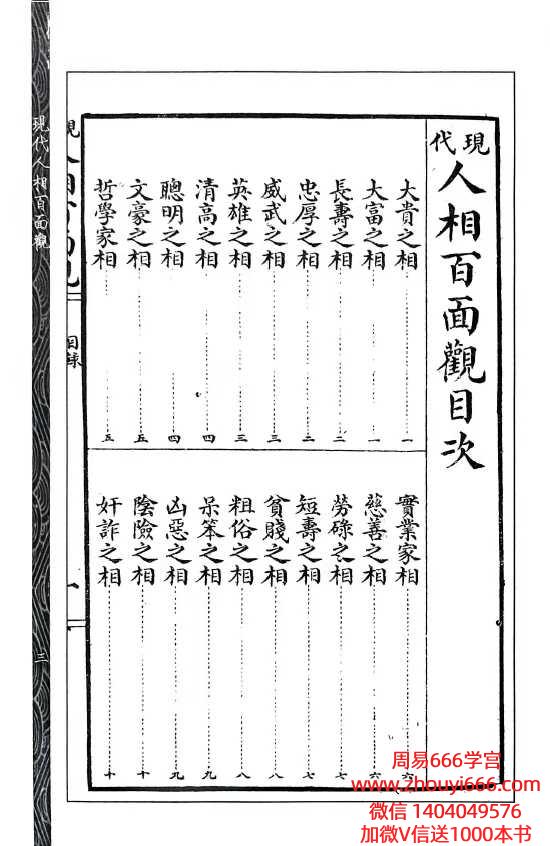 現代人相百面觀目次
大貴之相 一
大富之相 一
長壽之相 二
忠厚之相 二
威武之相 三
英雄之相 三
清高之相 四
聰明之相 四
文豪之相 五
哲學家相 五
實業家相 六
慈善之相 六
勞碌之相 七
短壽之相 七
貧賤之相 八
粗俗之相 八
呆笨之相 九
凶惡之相 九
陰險之相 十
奸詐之相 十
目錄
一
現代人相百面觀
三
周易666学宫
www.zhouyi666.com
微信 1404049576
加微V信送1000本书